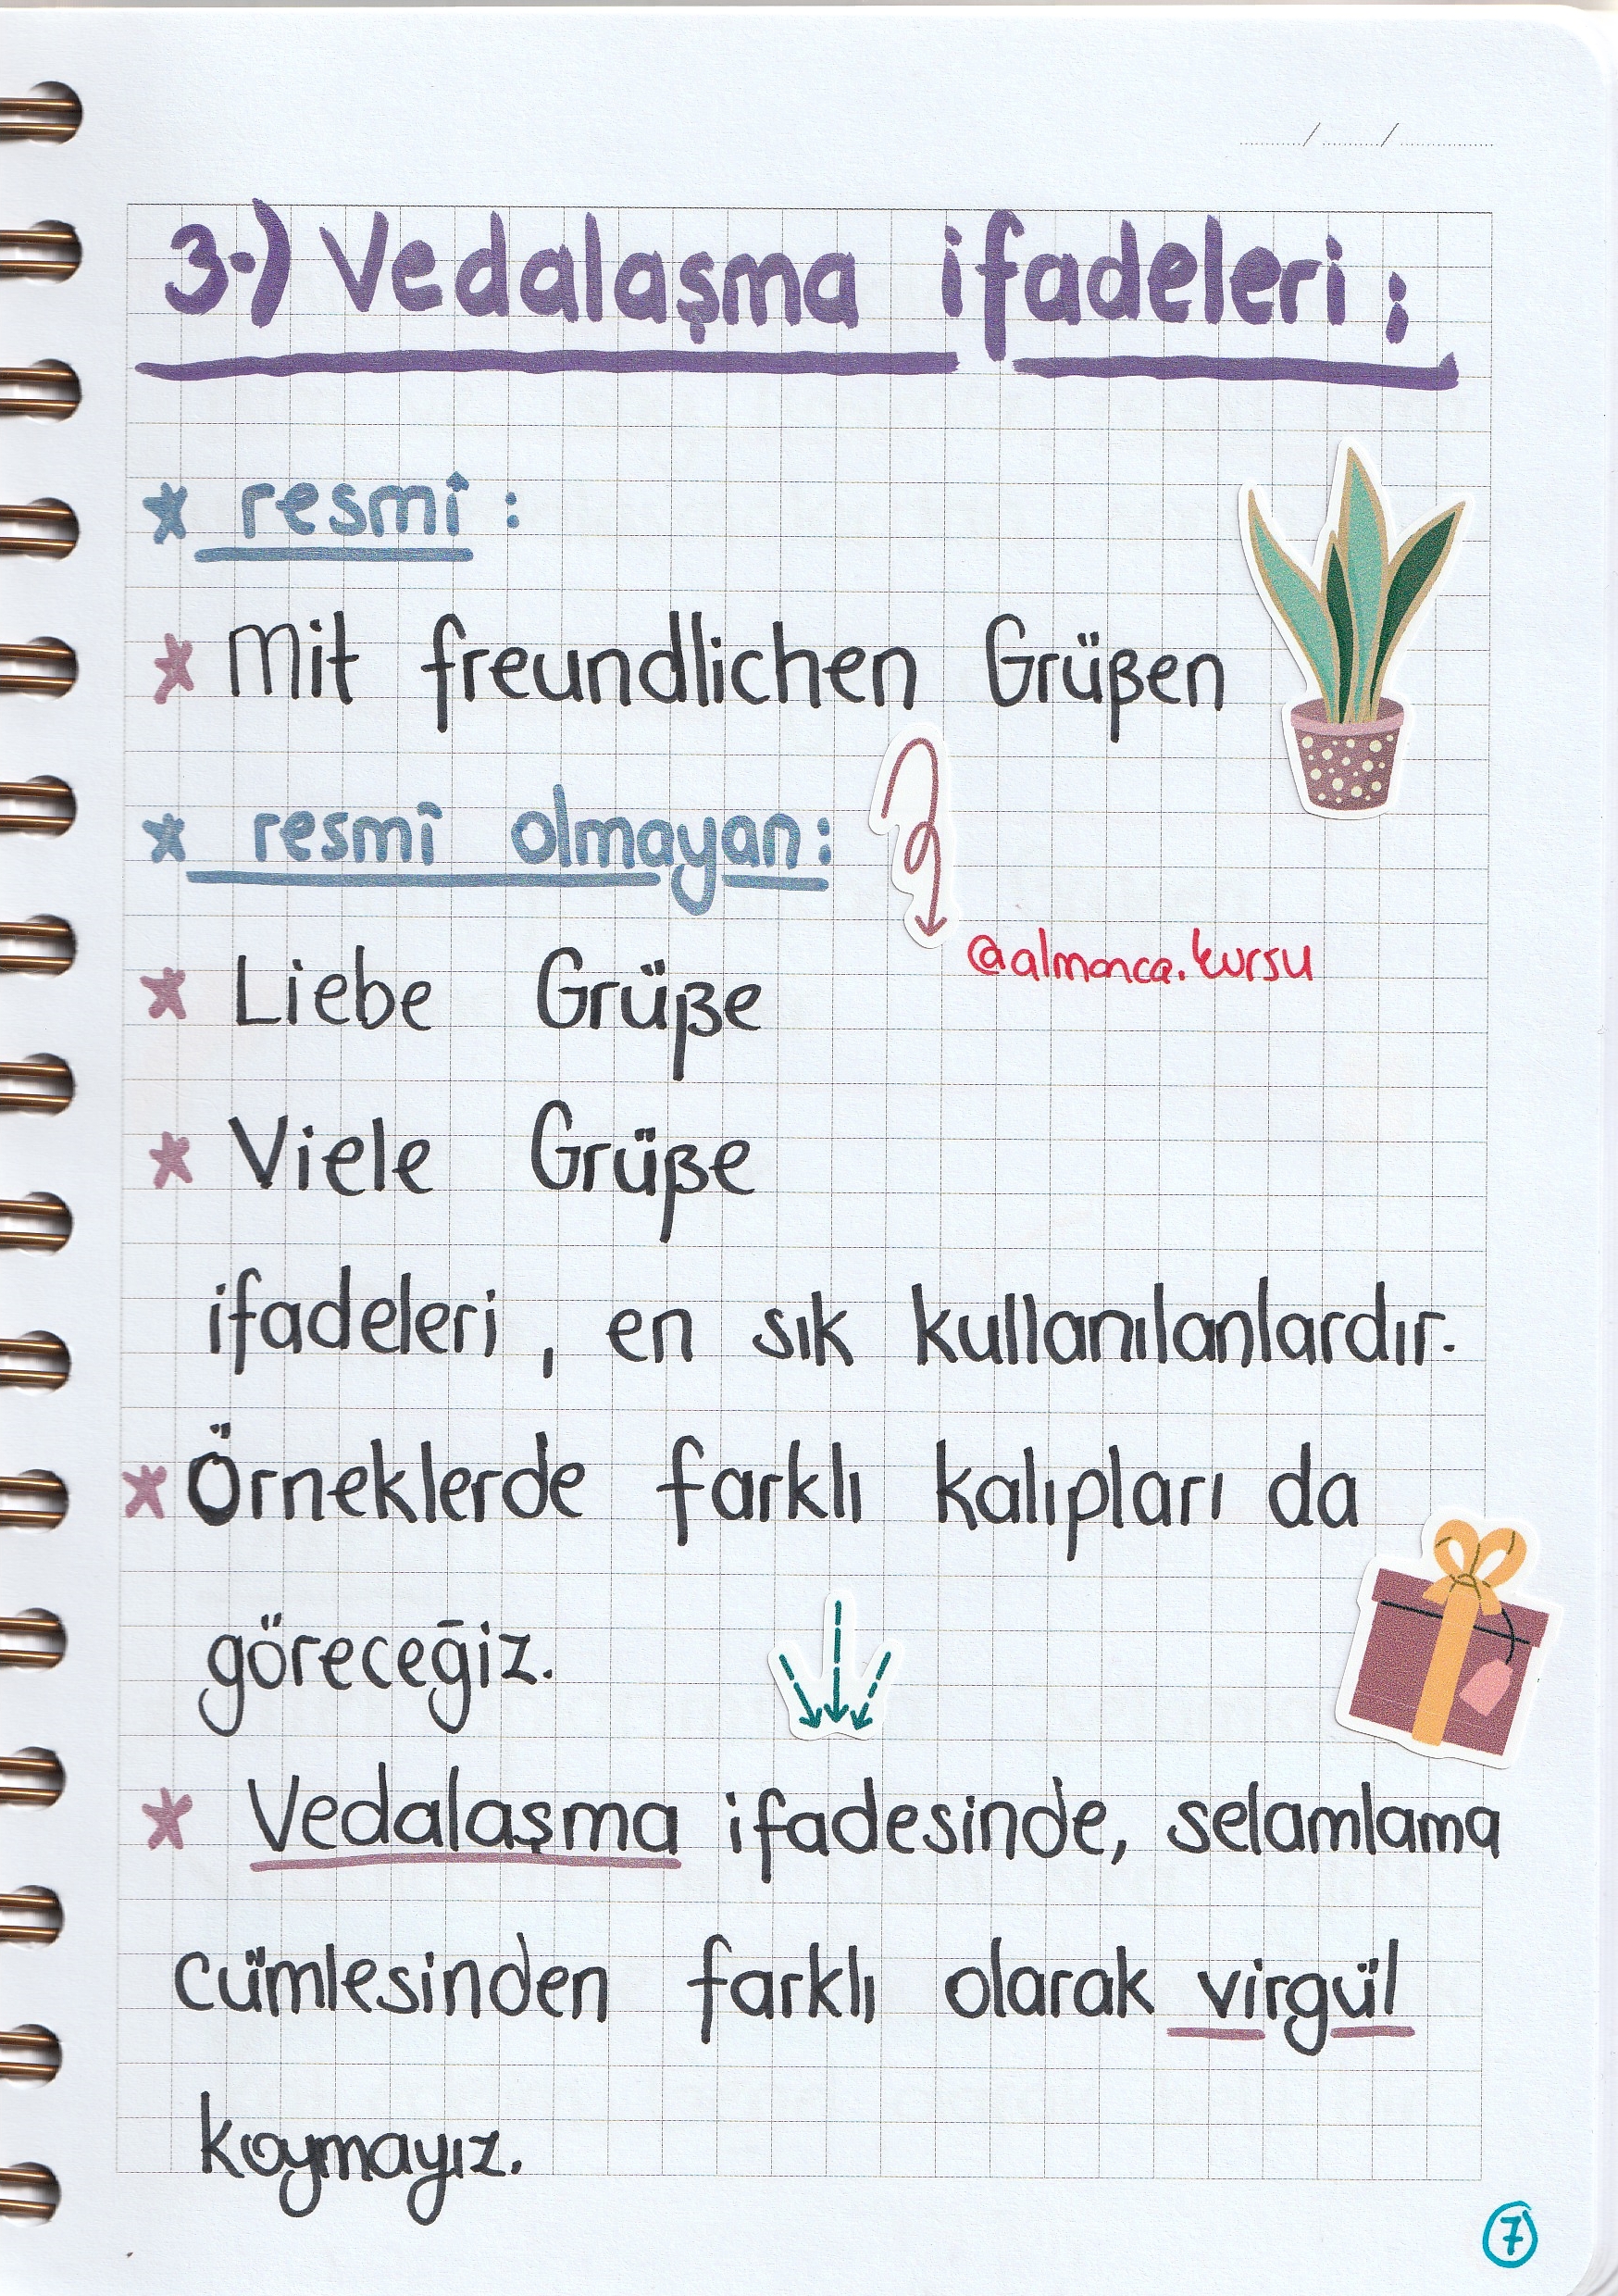 3-) Vedalaşma ifadeleri :
* resmî :
* Mit freundlichen Grüßen
* resmî olmayan :
@almanca.kursu
* Liebe Grüße
* Viele Grüße
ifadeleri , en sık kullanılanlardır.
* Örneklerde farklı kalıpları da
göreceğiz.
* Vedalaşma ifadesinde, selamlama
cümlesinden farklı olarak virgül
koymayız.
7